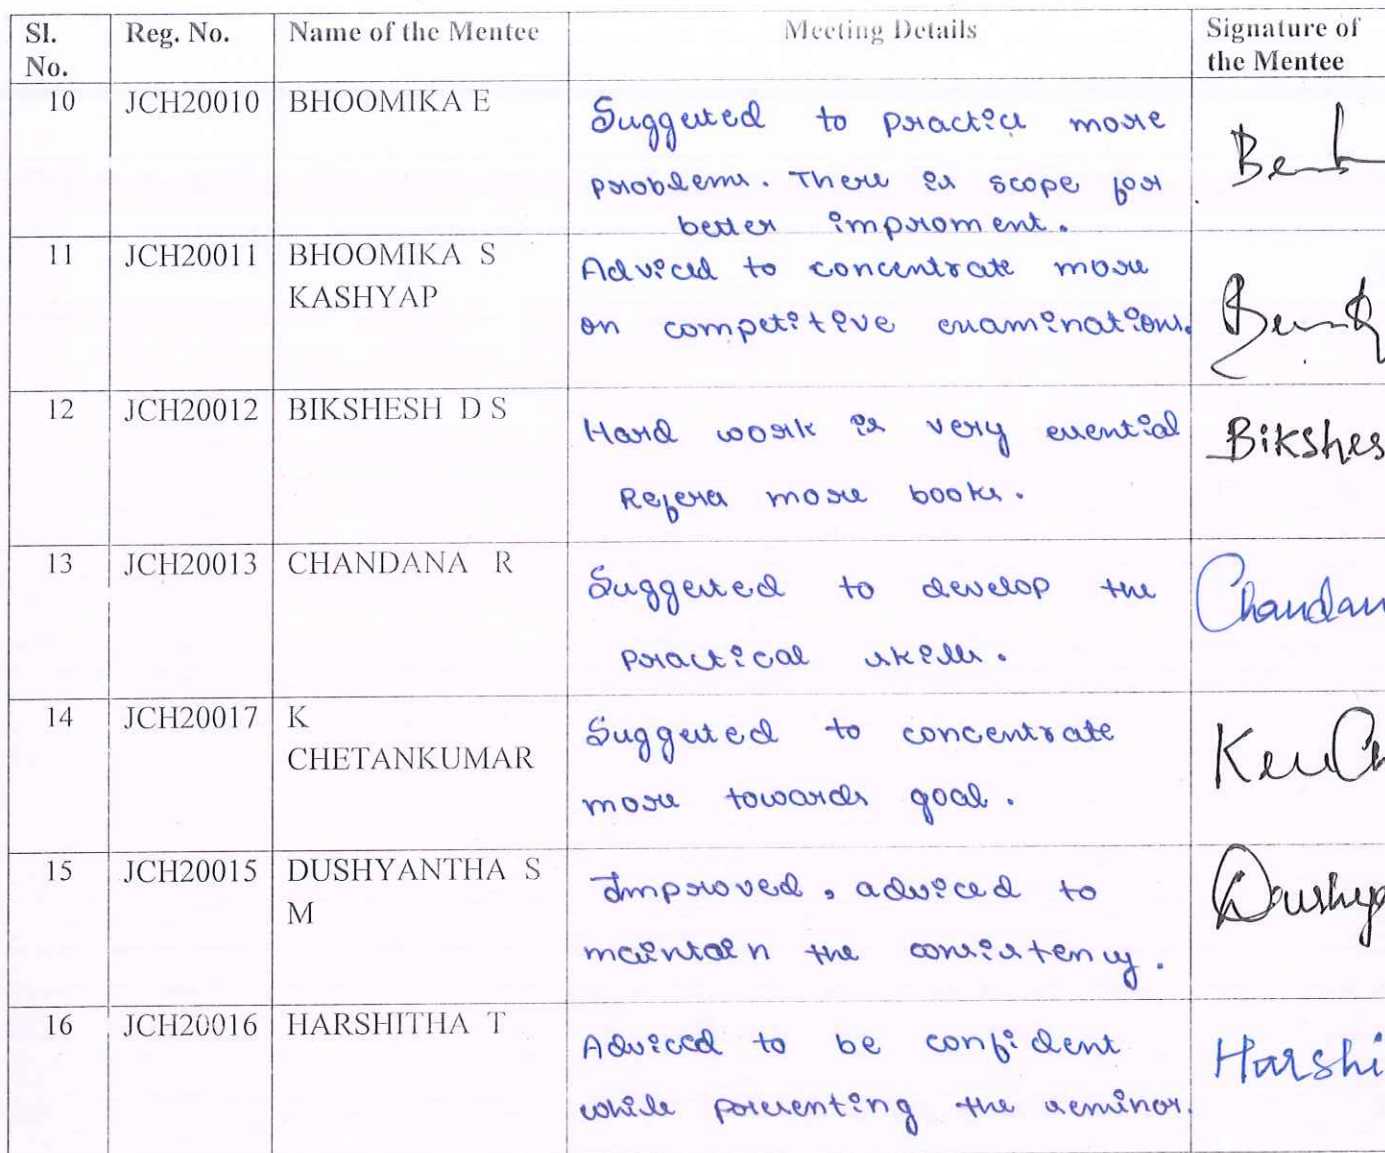 Sl. No. Reg. No. Name of the Mentee Meeting Details Signature of the Mentee
10 JCH20010 BHOOMIKA E Suggested to practice more
problems. There is scope for
better improment.
11 JCH20011 BHOOMIKA S Adviced to concentrate more
KASHYAP on competitive examinations.
12 JCH20012 BIKSHESH D S Hard work is very essential Bikshes
Refera more books.
13 JCH20013 CHANDANA R Suggested to develop the Chandan
practical skills.
14 JCH20017 K Suggested to concentrate
CHETANKUMAR more towards goal.
15 JCH20015 DUSHYANTHA S Improved, adviced to Dushya
M maintain the consistency.
16 JCH20016 HARSHITHA T Adviced to be confident Harshi
while presenting the seminor.